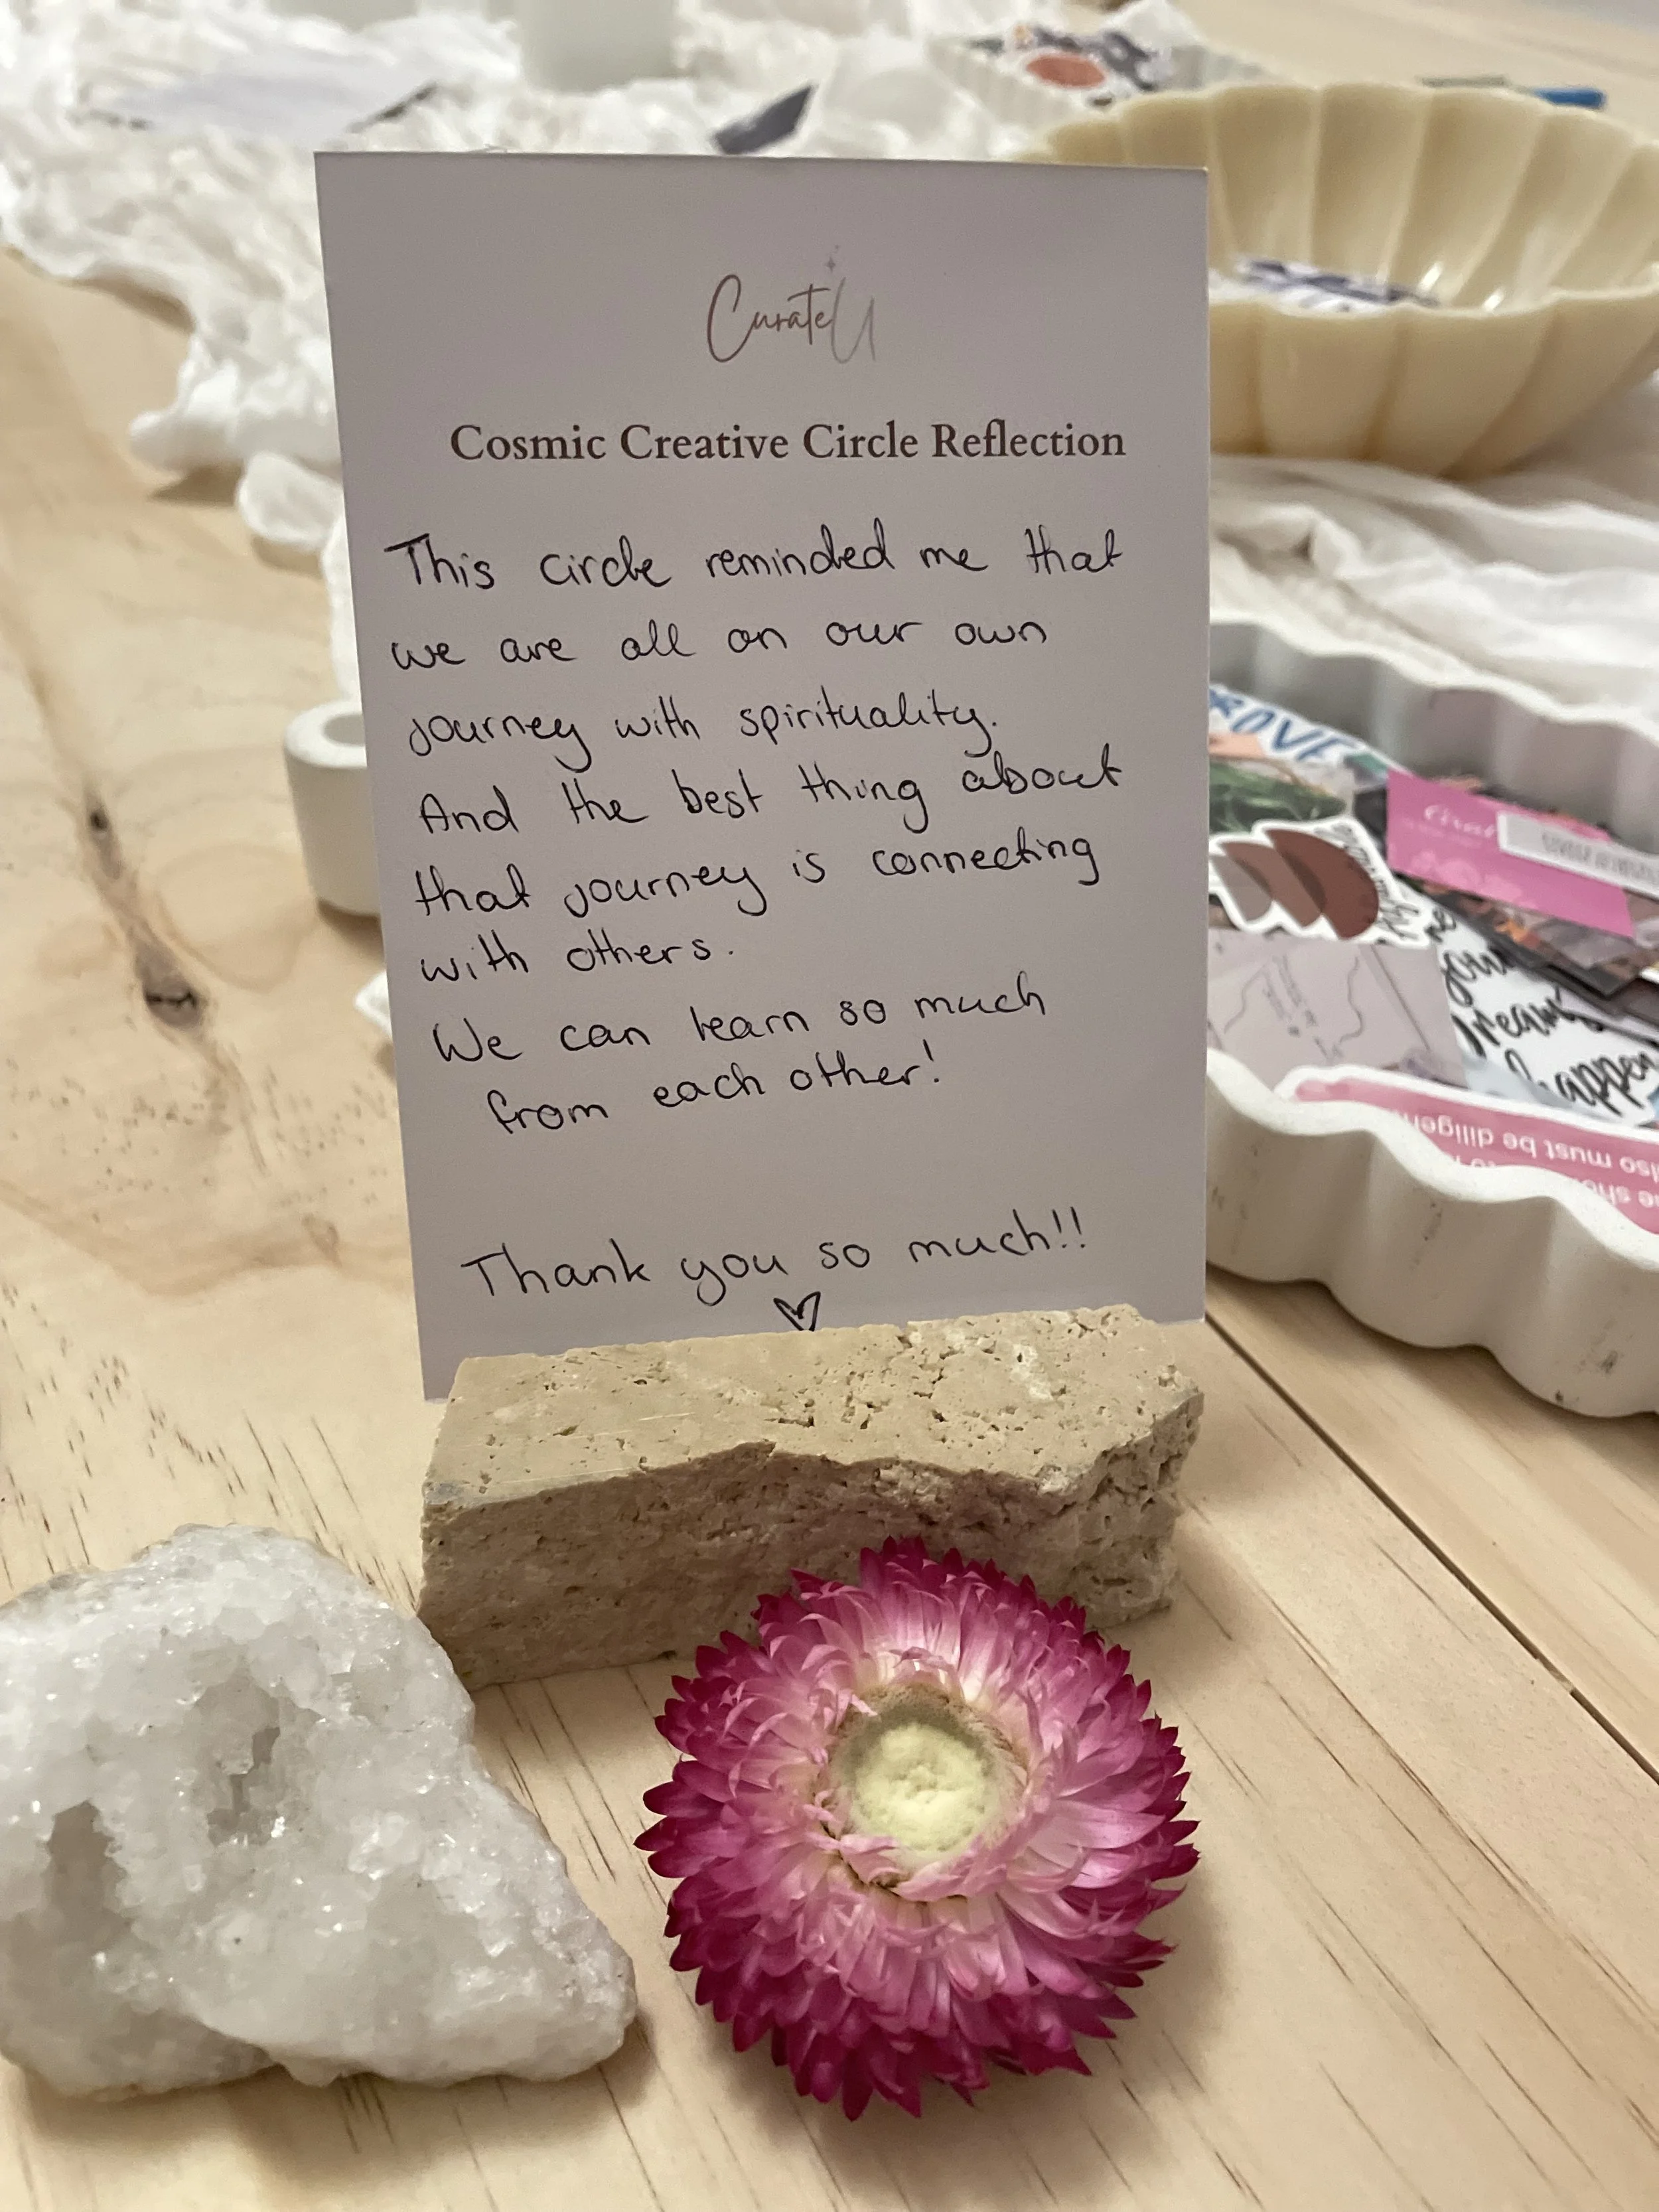 CurateU
Cosmic Creative Circle Reflection
This circle reminded me that
we are all on our own
journey with spirituality.
And the best thing about
that journey is connecting
with others.
We can learn so much
from each other!
Thank you so much!!
your
dreams
happen
also must be diligent